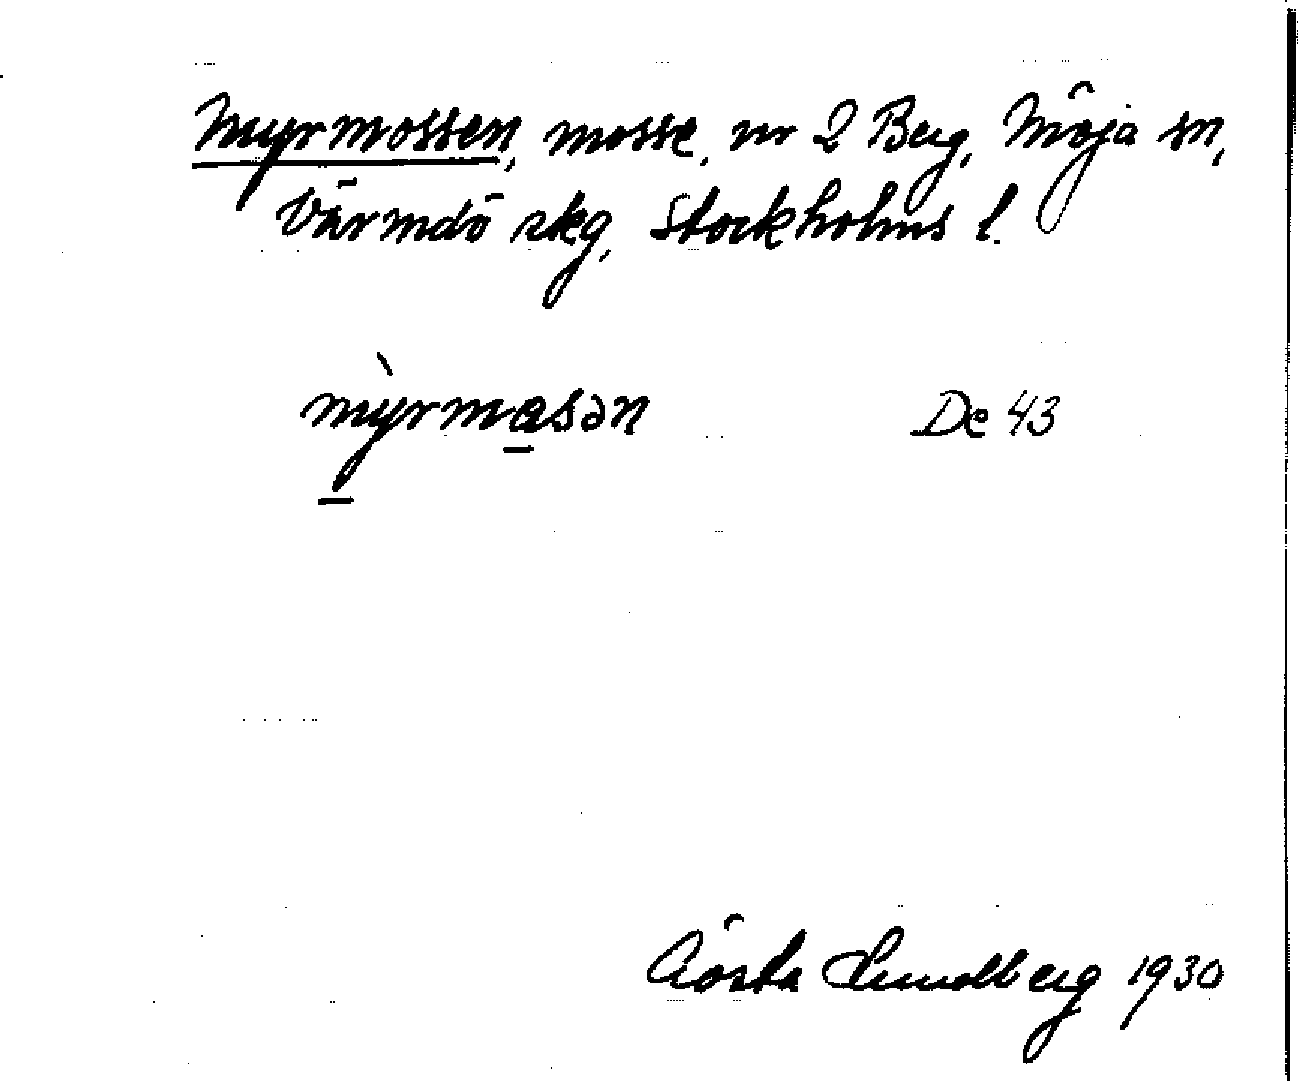 Myrmossen, mosse, nr 2 Berg, Möja sn,
Värmdö skg, Stockholms l.
mỳrmasən De 43
Gösta Lundberg 1930